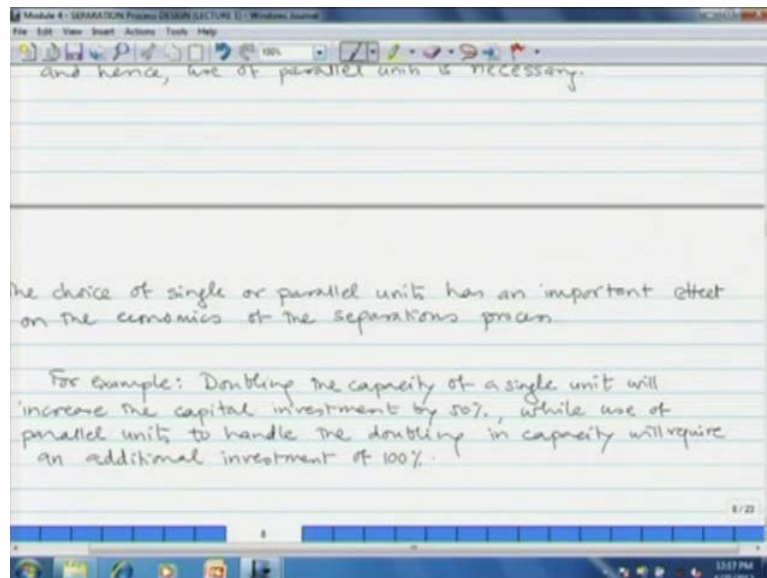 Module 4 - SEPARATION Process DESIGN (LECTURE 1) - Windows Journal
File Edit View Insert Actions Tools Help
100%
and hence, use of parallel units is necessary.
The choice of single or parallel units has an important effect
on the economics of the separations process
For example: Doubling the capacity of a single unit will
increase the capital investment by 50%, while use of
parallel units to handle the doubling in capacity will require
an additional investment of 100%.
8/23
8
12:17 PM